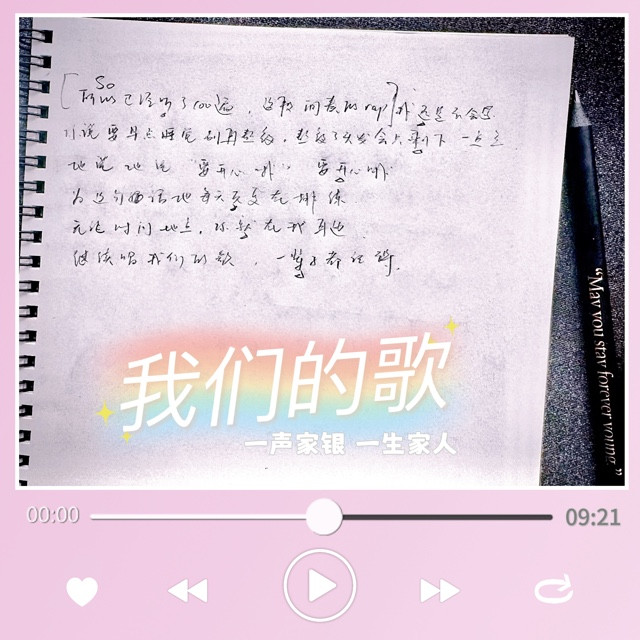 So
[所以已经写了100遍，这段间奏的rap]我还是不会写
小说要早点睡觉别再熬夜，熬夜了头发会只剩下一点点
她说她说“要开心哦”要开心哦
为这句话她每天至交在排练
无论时间地点，你就在我耳边
继续唱我们的歌，一辈子都记得.
我们的歌
一声家银 一生家人
00:00
09:21
“May you stay forever young”